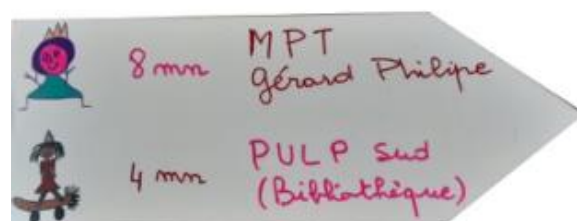 8 mn MPT
Gérard Philipe
4 mn PULP Sud
(Bibliothèque)